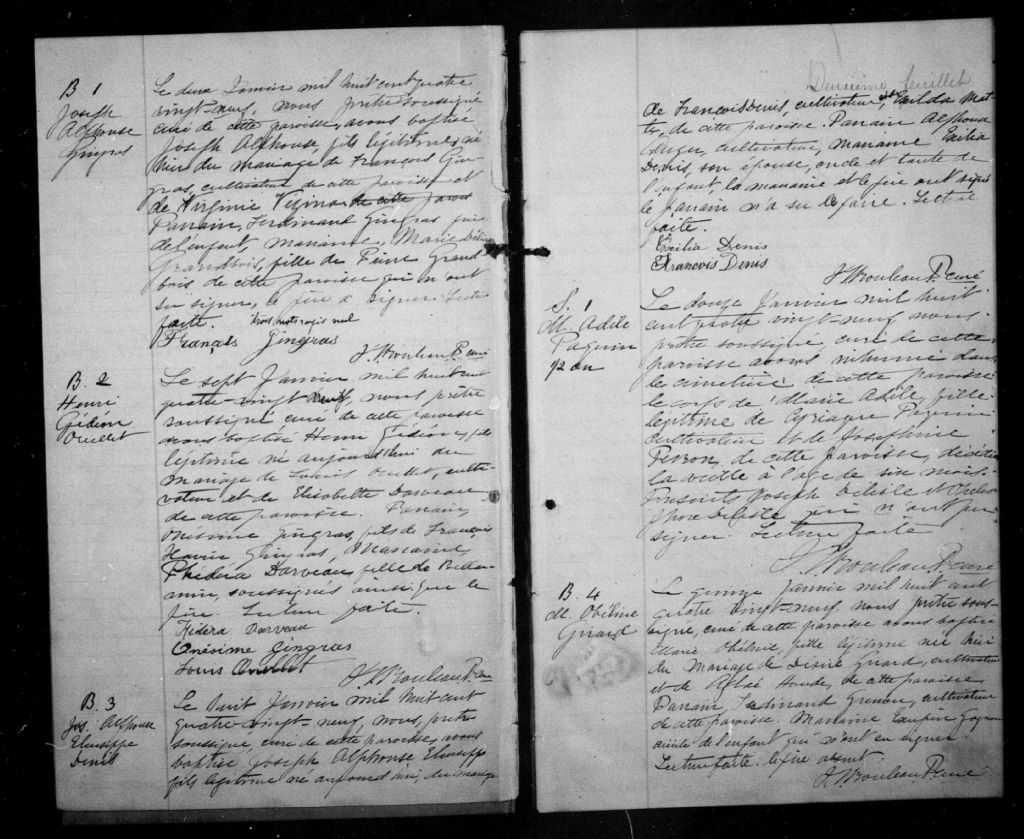 B 1
Joseph
Alphonse
Gingras
Le deux Janvier mil huit cent quatre
vingt-neuf, nous, prêtre soussigné
curé de cette paroisse, avons baptisé
Joseph Alphonse, fils légitime, né
hier du mariage de François Gin-
gras, cultivateur de cette paroisse et
de Virginie de cette parois
Parrain, Ferdinand Gingras frère
de l'enfant, marraine, Marie
Grandbois, fille de Pierre Grand
bois de cette paroisse qui n'ont
su signer, le père a signer. Lecture
faite. trois mots rayés nul
François Gingras
J. Rouleau Ptre curé
B. 2
Henri
Gédéon
Ouellet
Le sept Janvier mil huit cent
quatre-vingt neuf, nous prêtre
soussigné curé de cette paroisse
avons baptisé Henri Gédéon, fils
légitime né aujourd'hui du
mariage de Louis Ouellet, culti-
vateur et de Elisabette Darveau
de cette paroisse. Parrain,
Onésime Gingras, fils de François
Xavier Gingras, Marraine,
Phédéra Darveau, fille de Benja-
min, soussignés ainsi que le
père. Lecture faite.
Fédéra Darveau
Onésime Gingras
Louis Ouellet
J. Rouleau Ptre curé
B. 3
Jos. Alphonse
Eleusippe
Denis
Le huit Janvier mil huit cent
quatre-vingt-neuf, nous, prêtre
soussigné, curé de cette paroisse, avons
baptisé Joseph Alphonse, Eleusippe
fils légitime né aujourd'hui, du mariage
Deuxième feuillet
de François Denis, cultivateur, et de Exilda Mat
te, de cette paroisse. Parrain Alphonse
cultivateur, marraine Exilia
Denis, son épouse, oncle et tante de
l'enfant, la marraine et le père ont signé
le parrain n'a su le faire. Lecture
faite.
Exilia Denis
François Denis
J. Rouleau Ptre curé
S. 1
M. Adèle
Paquin
1/2 an
Le douze Janvier mil huit
cent quatre vingt-neuf nous
prêtre soussigné, curé de cette
paroisse avons inhumé dans
le cimetière de cette paroisse
le corps de Marie Adèle, fille
légitime de Cyriaque Paquin
cultivateur et de Joséphine
Perron, de cette paroisse, décédée
la veille à l'âge de six mois.
Présents Joseph Delisle et
Delisle qui n'ont pu
signer. Lecture faite
J. Rouleau Ptre curé
B. 4
M. Obéline
Girard
Le quinze Janvier mil huit cent
quatre vingt-neuf, nous prêtre sous-
signé, curé de cette paroisse avons baptisé
Marie Obéline, fille légitime née hier
du Mariage de Désiré Girard, cultivateur
et de Hardy, de cette paroisse
Parrain, Ferdinand Grenon, cultivateur
de cette paroisse. Marraine Gagnon
aïeule de l'enfant qui n'ont su signer.
Lecture faite. le père absent.
J. Rouleau Ptre curé